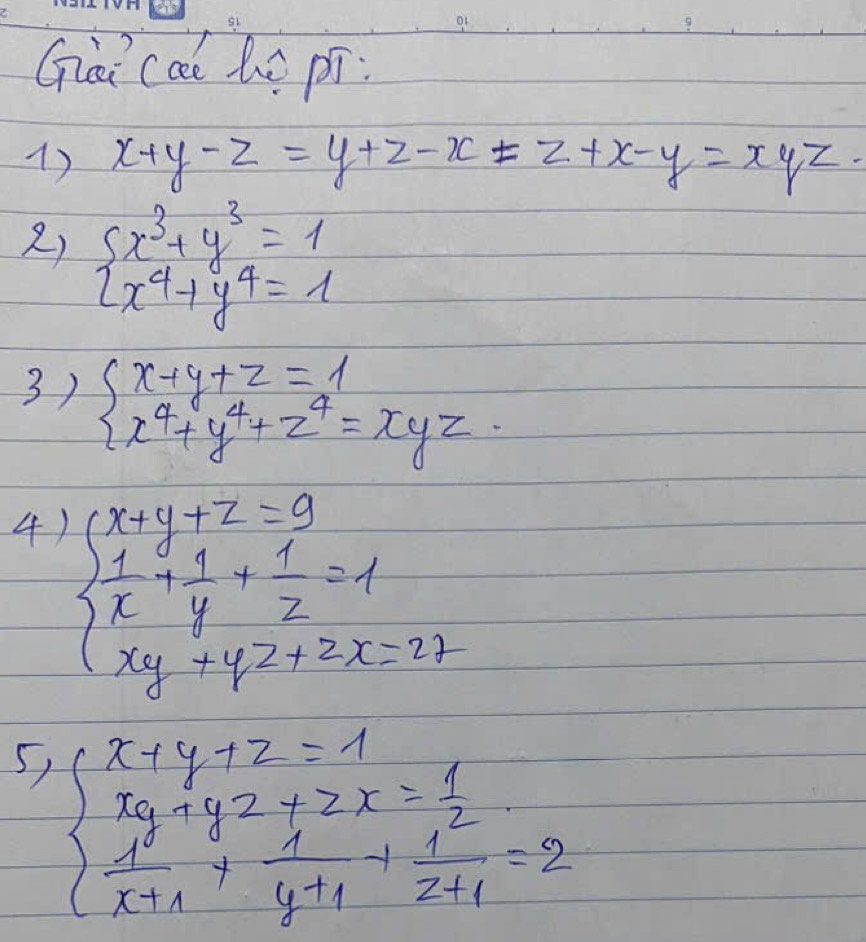 HẢI TIẾN
15 10 5
Giải các hệ pT:
1) x+y-z = y+z-x = z+x-y = xyz.
2) { x³+y³ = 1
{ x⁴+y⁴ = 1
3) { x+y+z = 1
{ x⁴+y⁴+z⁴ = xyz.
4) { x+y+z = 9
{ 1/x + 1/y + 1/z = 1
{ xy+yz+zx = 27
5) { x+y+z = 1
{ xy+yz+zx = 1/2.
{ 1/(x+1) + 1/(y+1) + 1/(z+1) = 2